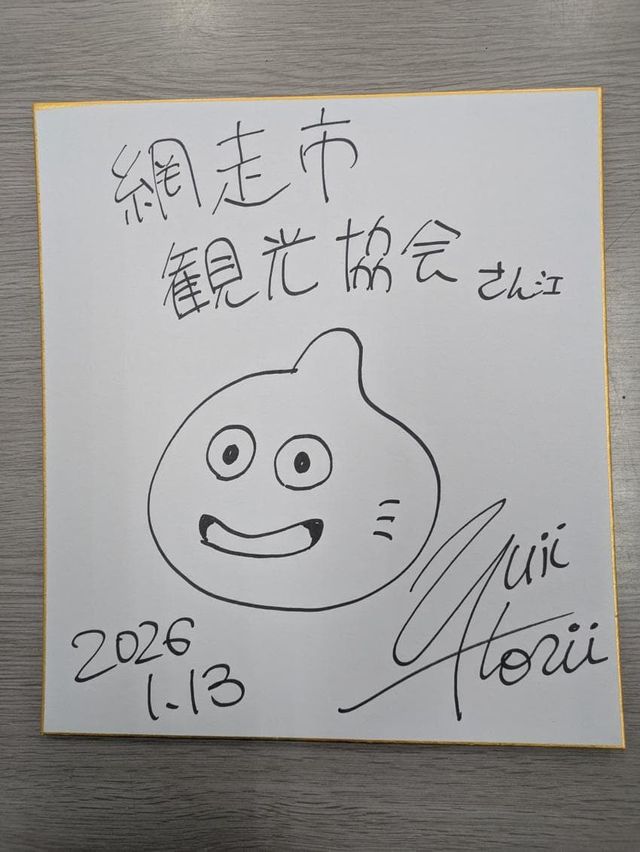 網走市
観光協会さん江
2026
1.13
Yuji
Horii